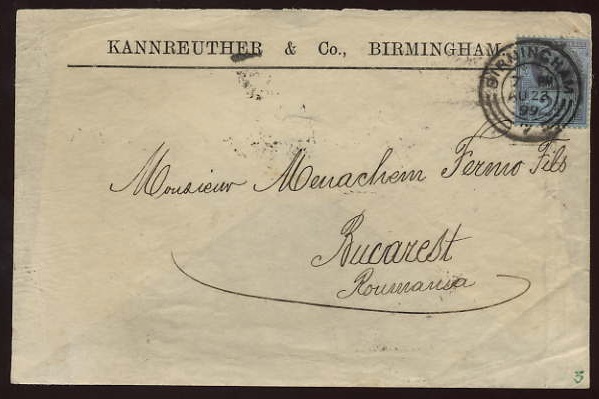 KANNREUTHER & Co., BIRMINGHAM
BIRMINGHAM
AU 23
99
Monsieur Menachem Fermo Fils
Bucarest
Roumania
3